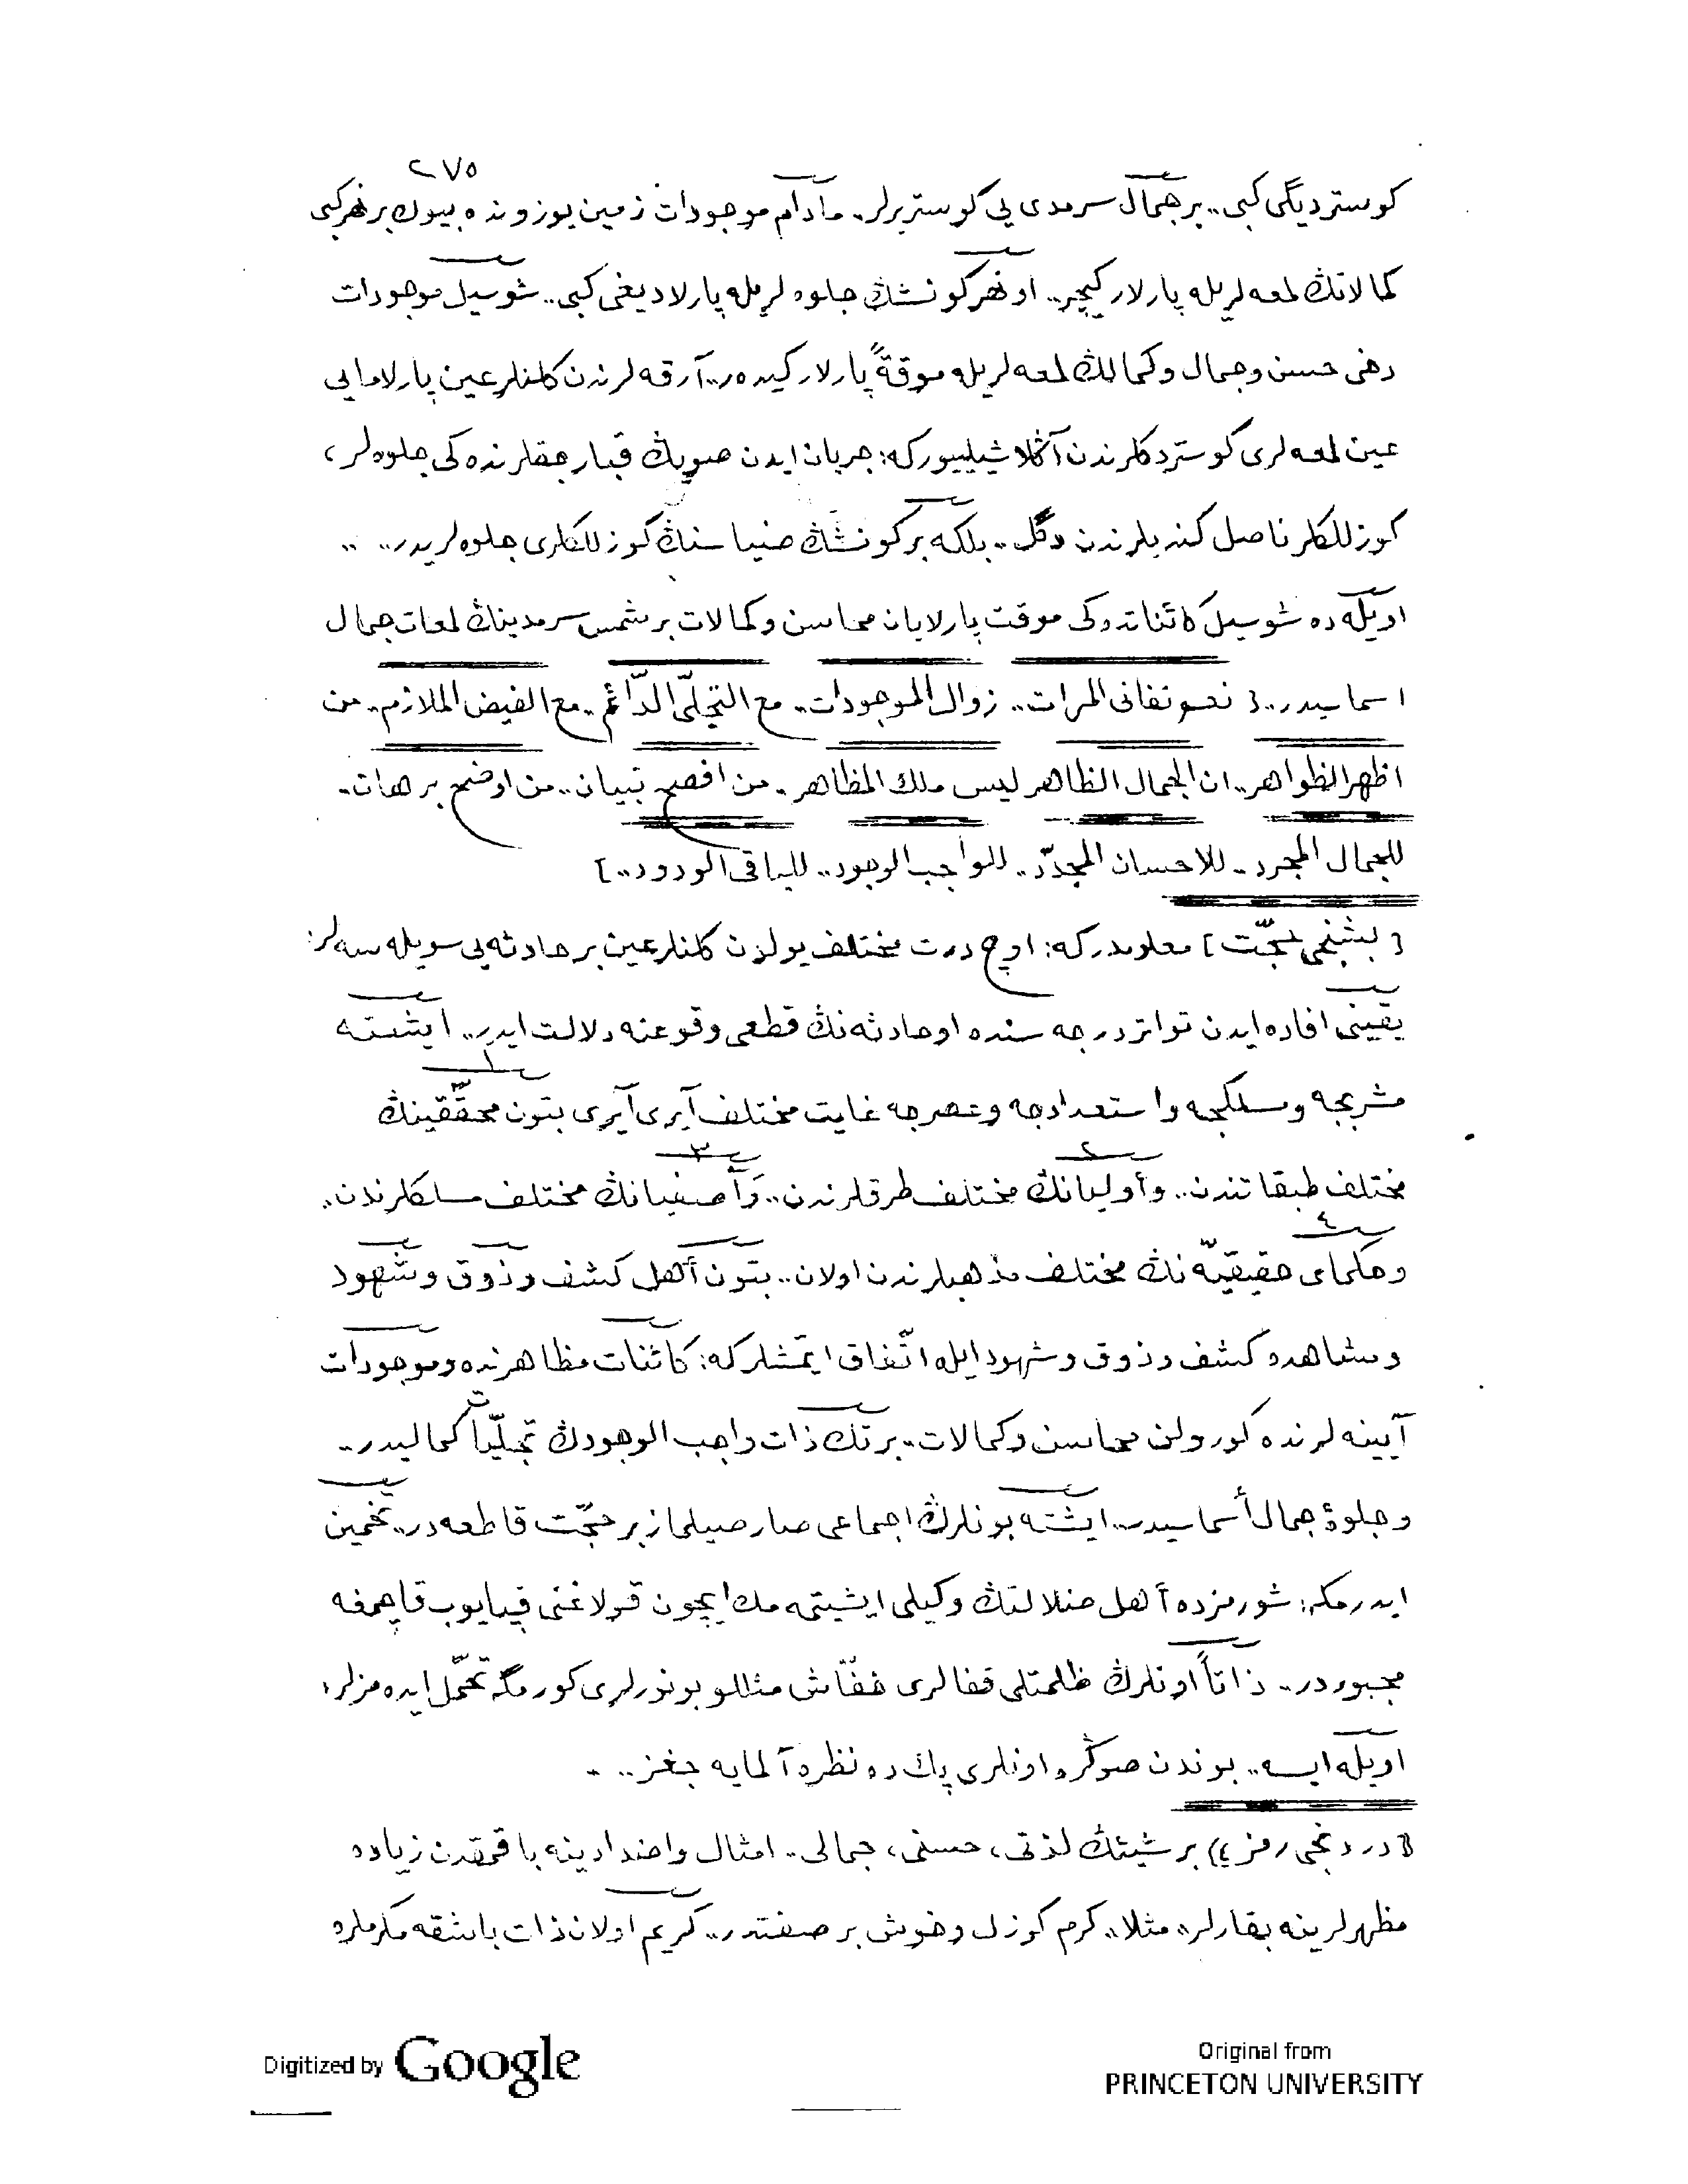 ٢٧٥
كوستردیگی كبی.. بر جمال سرمدی یی كوستریرلر.. مادام موجودات زمین یوزونده بیوك بر نهر كبی
كمالاتڭ لمعه لریله پارلار كیچر.. او نهر كونشڭ جلوه لریله پارلادیغی كبی.. شو سیل موجودات
دخی حسن وجمال وكمالڭ لمعه لریله موقةً پارلار كیده ر.. آرقه لرندن كلنلر عین پارلامایی
عین لمعه لری كوستردكلرندن آڭلاشیلییوركه: جریان ایدن صویڭ قبارجقلرنده كی جلوه لر،
كوزللكلر ناصل كندیلرندن دگل.. بلكه بر كونشڭ ضیاسنڭ كوزللكلری جلوه لریدر.. ..
اویله ده شو سیل كائناتده كی موقت پارلایان محاسن وكمالات بر شمس سرمدینڭ لمعات جمال
اسماسیدر.. [ نعم تفانی المرات.. زوال الموجودات.. مع التجلّی الدّائم.. مع الفیض الملازم.. من
اظهر الظواهر.. ان الجمال الظاهر لیس ملك المظاهر.. من افصح تبیان.. من اوضح برهان..
للجمال المجرد.. للاحسان المجدّد.. للواجب الوجود.. للباقی الودود.. ]
[ بشنجی حجّت ] معلومدركه: اوچ درت مختلف یولدن كلنلر عین بر حادثه یی سویله سه لر:
یقینی افاده ایدن تواتر درجه سنده او حادثه نڭ قطعی وقوعنه دلالت ایدر.. ایشته
١
مشربجه ومسلكجه واستعدادجه وعصرجه غایت مختلف آیری آیری بتون محقّقینڭ
٢ ٣
مختلف طبقاتندن.. وأولیانڭ مختلف طرقلرندن.. وَأصفیانڭ مختلف مسلكلرندن..
٤
وحكمای حقیقیّه نڭ مختلف مذهبلرندن اولان.. بتون أهل كشف وذوق وشهود
ومشاهده كشف وذوق وشهود ایله اتّفاق ایتمشلركه: كائنات مظاهرنده وموجودات
آیینه لرنده كورولن محاسن وكمالات.. بر تك ذات واجب الوجودڭ تجلّیات كمالیدر..
وجلوۀ جمال أسماسیدر.. ایشته بونلرڭ اجماعی صارصیلماز بر حجّت قاطعه در.. تخمین
ایدرمكه: شو رمزده أهل ضلالتڭ وكیلی ایشیتمه مك ایچون قولاغنی قپایوب قاچمغه
مجبوردر.. ذاتاً اونلرڭ ظلمتلی قفالری خفّاش مثللو بو نورلری كورمگه تحمّل ایده مزلر،
اویله ایسه.. بوندن صوڭره اونلری پك ده نظره آلمایه جغز.. ..
[ دردنجی رمز ] بر شیئڭ لذتی، حسنی، جمالی.. امثال واضدادینه باقمقدن زیاده
مظهرلرینه بقارلر.. مثلا.. كرم كوزل وخوش بر صفتدر.. كریم اولان ذات باشقه مكرملره
Digitized by Google
Original from
PRINCETON UNIVERSITY